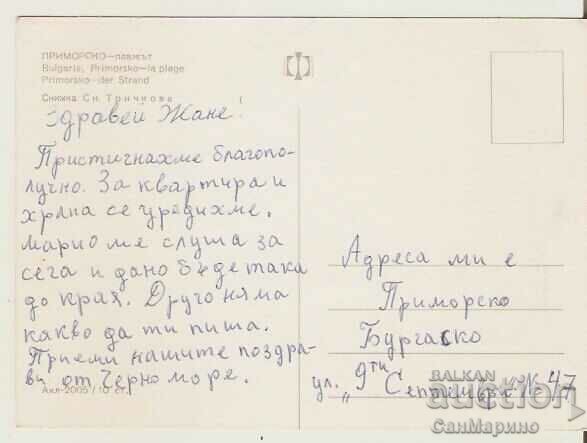 ПРИМОРСКО—плажът
Bulgarie, Primorsko—la plage
Primorsko—der Strand
Снимка Сн. Тричкова
Здравей Жане.
Пристигнахме благопо-
лучно. За квартира и
храна се уредихме.
Марио ме слуша за
сега и дано бъде така
до края. Друго няма
какво да ти пиша.
Приеми нашите поздра-
ви от Черно море.
Акл-2005 / 10 ст.
Адреса ми е
Приморско
Бургаско
ул. „9ти Септември" № 47
BALKAN
auction
СанМарино